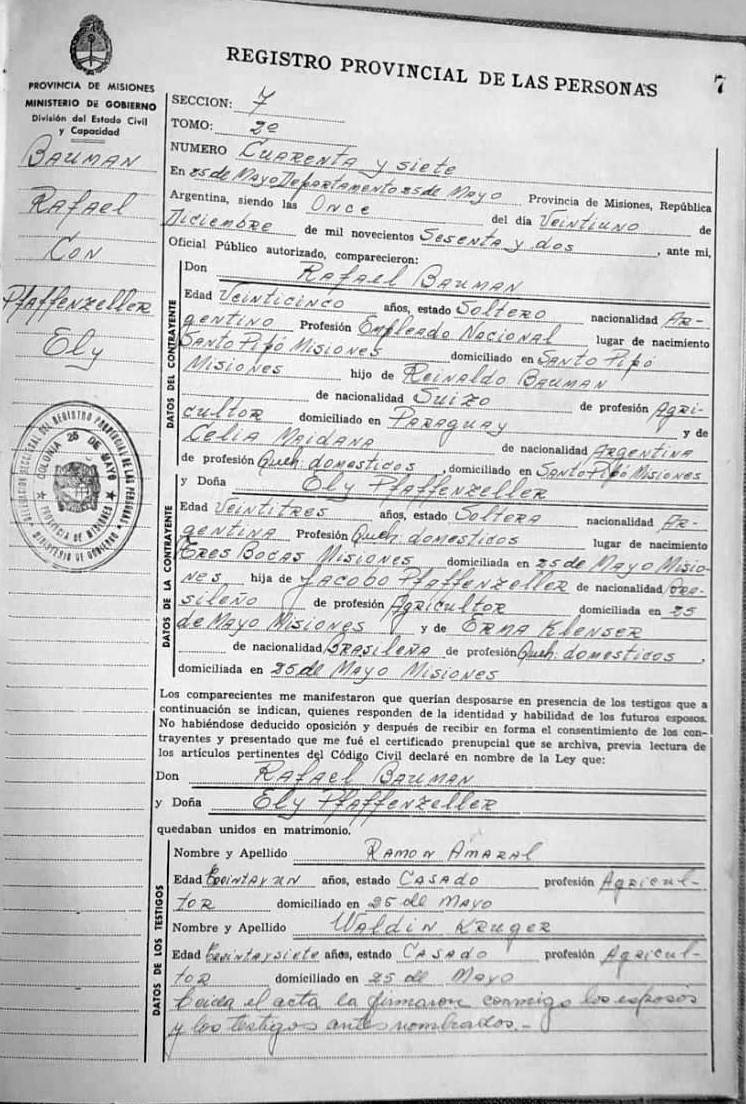 REGISTRO PROVINCIAL DE LAS PERSONAS
7
PROVINCIA DE MISIONES
MINISTERIO DE GOBIERNO
División del Estado Civil
y Capacidad
BAUMAN
RAFAEL
CON
PFAFFENZELLER
ELY
DELEGACION SECCIONAL DEL REGISTRO PROVINCIAL DE LAS PERSONAS
COLONIA 25 DE MAYO
PROVINCIA DE MISIONES
MINISTERIO DE GOBIERNO
SECCION: 7
TOMO: 2º
NUMERO Cuarenta y siete
En 25 de Mayo Departamento 25 de Mayo Provincia de Misiones, República
Argentina, siendo las Once del día Veintiuno de
Diciembre de mil novecientos Sesenta y dos, ante mi,
Oficial Público autorizado, comparecieron:
DATOS DEL CONTRAYENTE
Don Rafael Bauman
Edad Veinticinco años, estado Soltero nacionalidad Ar-
gentino Profesión Empleado Nacional lugar de nacimiento
Santo Pipó Misiones domiciliado en Santo Pipó
Misiones hijo de Reinaldo Bauman
de nacionalidad Suizo de profesión Agri-
cultor domiciliado en Paraguay y de
Celia Maidana de nacionalidad Argentina
de profesión Queh. domesticos, domiciliado en Santo Pipó Misiones
DATOS DE LA CONTRAYENTE
y Doña Ely Pfaffenzeller
Edad Veintitres años, estado Soltera nacionalidad Ar-
gentina Profesión Queh. domesticos lugar de nacimiento
Tres Bocas Misiones domiciliada en 25 de Mayo Misio-
nes hija de Jacobo Pfaffenzeller de nacionalidad Bra-
sileño de profesión Agricultor domiciliada en 25
de Mayo Misiones y de Erma Klenser
de nacionalidad Brasileña de profesión Queh. domesticos,
domiciliada en 25 de Mayo Misiones
Los comparecientes me manifestaron que querían desposarse en presencia de los testigos que a
continuación se indican, quienes responden de la identidad y habilidad de los futuros esposos.
No habiéndose deducido oposición y después de recibir en forma el consentimiento de los con-
trayentes y presentado que me fué el certificado prenupcial que se archiva, previa lectura de
los artículos pertinentes del Código Civil declaré en nombre de la Ley que:
Don Rafael Bauman
y Doña Ely Pfaffenzeller
quedaban unidos en matrimonio.
DATOS DE LOS TESTIGOS
Nombre y Apellido Ramon Amaral
Edad treintayun años, estado Casado profesión Agricul-
tor domiciliado en 25 de Mayo
Nombre y Apellido Waldin Kruger
Edad treintaysiete años, estado Casado profesión Agricul-
tor domiciliado en 25 de Mayo
Leida el acta la firmaron conmigo los esposos
y los testigos antes nombrados.-